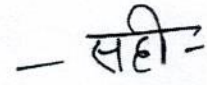 - सही -